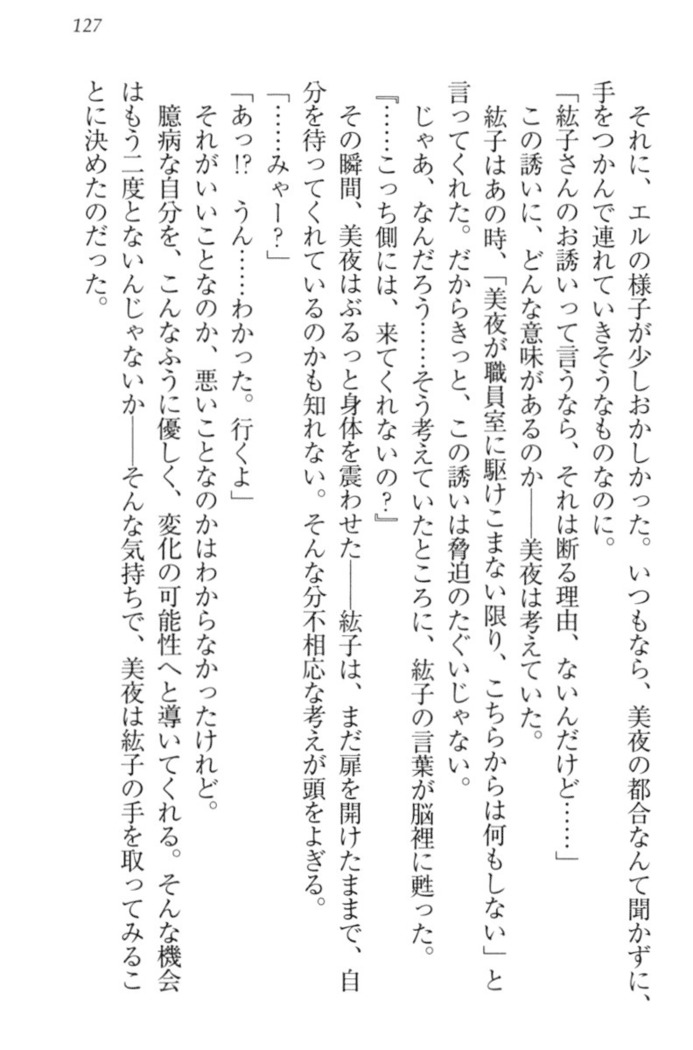 127
それに、エルの様子が少しおかしかった。いつもなら、美夜の都合なんて聞かずに、
手をつかんで連れていきそうなものなのに。
「紘子さんのお誘いって言うなら、それは断る理由、ないんだけど……」
この誘いに、どんな意味があるのか――美夜は考えていた。
紘子はあの時、「美夜が職員室に駆けこまない限り、こちらからは何もしない」と
言ってくれた。だからきっと、この誘いは脅迫のたぐいじゃない。
じゃあ、なんだろう……そう考えていたところに、紘子の言葉が脳裡に甦った。
『……こっち側には、来てくれないの？』
その瞬間、美夜はぶるっと身体を震わせた――紘子は、まだ扉を開けたままで、自
分を待ってくれているのかも知れない。そんな分不相応な考えが頭をよぎる。
「……みゃー？」
「あっ!?　うん……わかった。行くよ」
それがいいことなのか、悪いことなのかはわからなかったけれど。
臆病な自分を、こんなふうに優しく、変化の可能性へと導いてくれる。そんな機会
はもう二度とないんじゃないか――そんな気持ちで、美夜は紘子の手を取ってみるこ
とに決めたのだった。